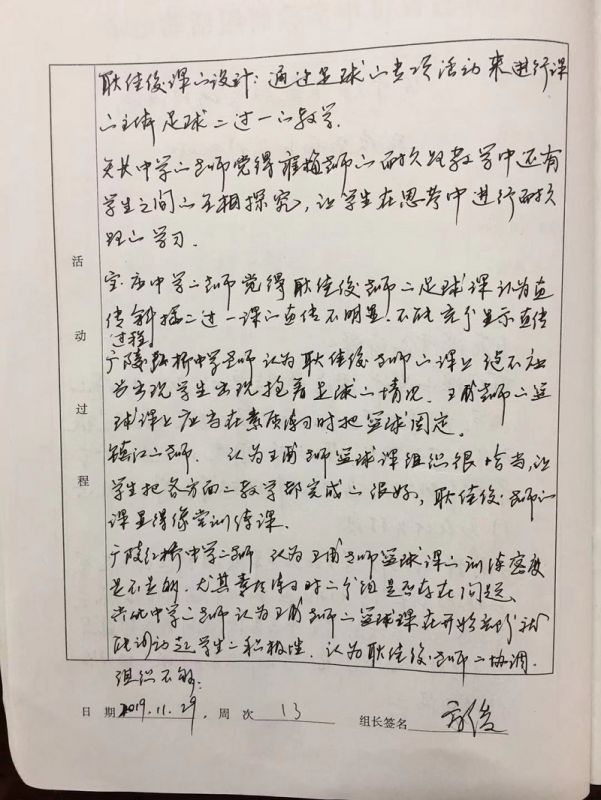 耿佳俊课的设计：通过足球的专项活动来进行课
的主体足球二过一的教学.
中学的老师觉得 老师的耐久跑教学中还有
学生之间的互相探究，让学生在思考中进行耐久
跑的学习.
中学的老师觉得耿佳俊老师的足球课认为直
传斜插二过一课的直传不明显.不能充分显示直传
过程
广陵 桥中学老师认为耿佳俊老师的课上绝不应
当出现学生出现抱着足球的情况. 王甫老师的篮
球课上应当在素质练习时把篮球固定.
镇江的老师. 认为王甫老师篮球课组织很恰当,让
学生把各方面的教学都完成的很好, 耿佳俊老师的
课显得像堂训练课.
广陵红桥中学的老师 认为王甫老师篮球课的训练密度
是不是够.尤其素质练习时二个组是否存在问题.
中学的老师认为王甫老师的篮球课在开始部分就
能调动起学生的积极性. 认为耿佳俊老师的协调.
组织不够.
活
动
过
程
日 期 2019.11.29. 周 次 13 组长签名